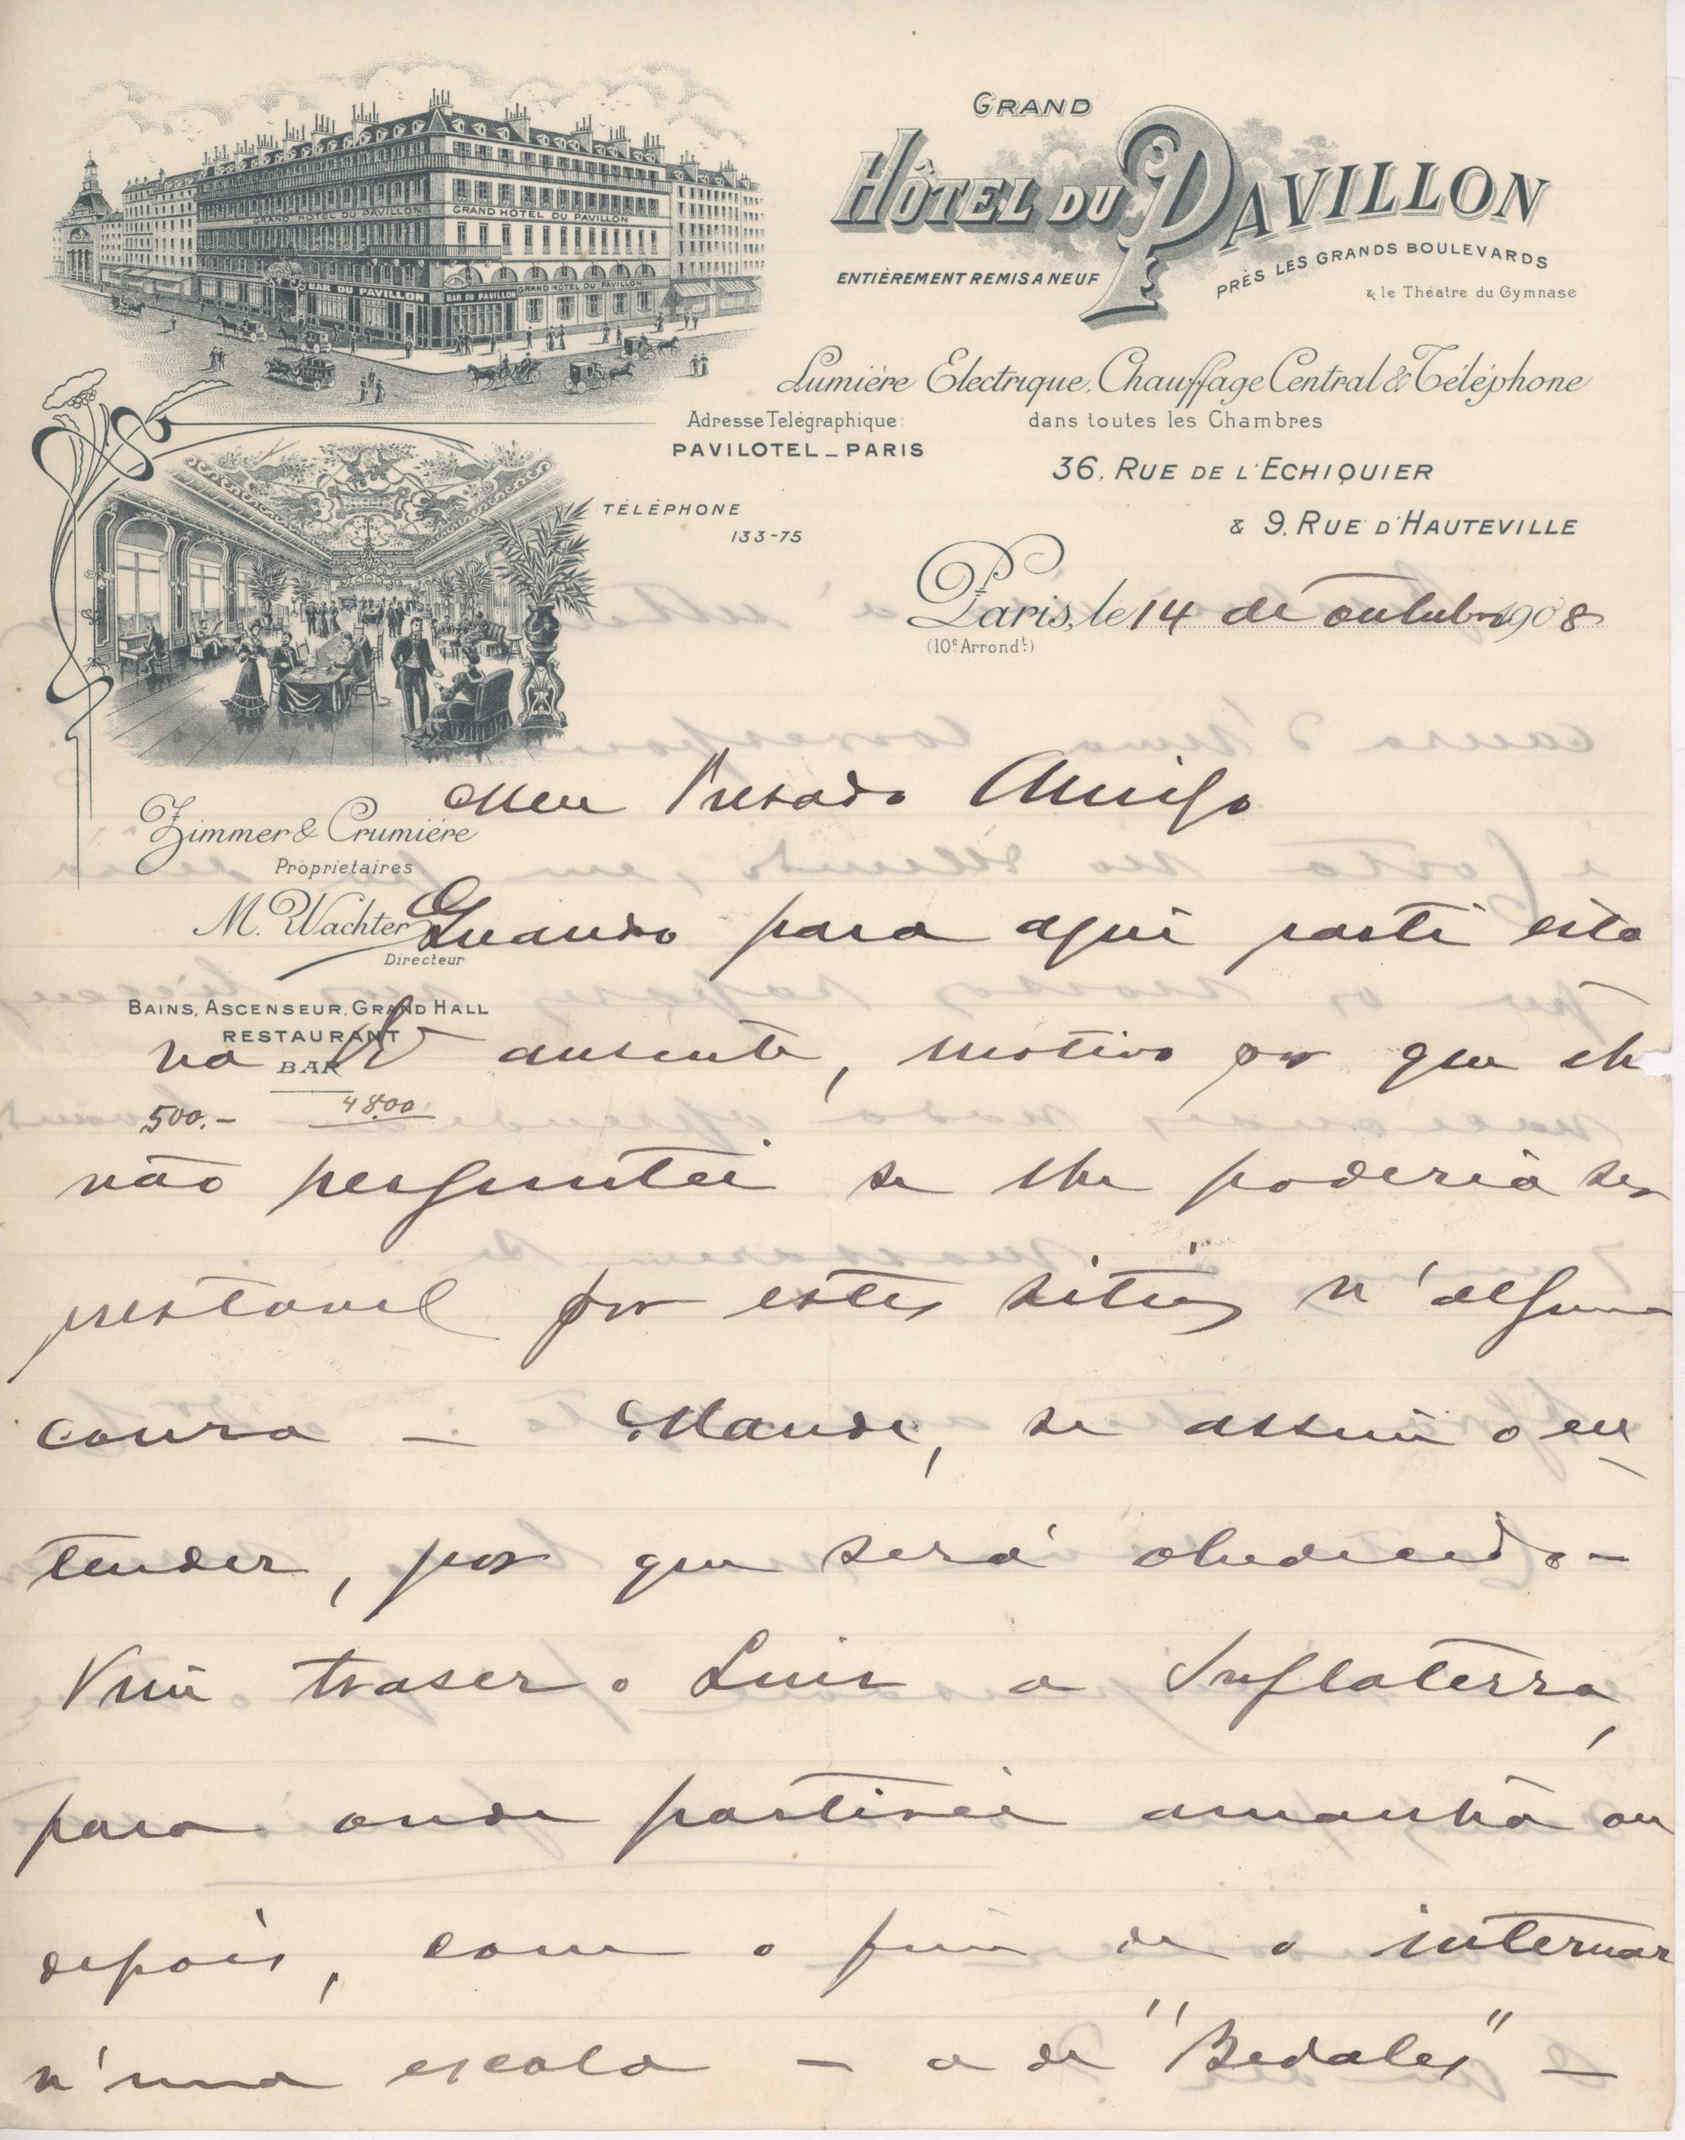 GRAND
HÔTEL DU PAVILLON
ENTIÈREMENT REMIS A NEUF
PRÈS LES GRANDS BOULEVARDS
& le Théatre du Gymnase
GRAND HOTEL DU PAVILLON
GRAND HOTEL DU PAVILLON
BAR DU PAVILLON
BAR DU PAVILLON
GRAND HOTEL DU PAVILLON
Lumière Electrique, Chauffage Central & Téléphone
dans toutes les Chambres
Adresse Télégraphique:
PAVILOTEL _ PARIS
36, RUE DE L'ECHIQUIER
TÉLÉPHONE
133-75
& 9, RUE D'HAUTEVILLE
Paris, le 14 de outubro 1908
(10e Arrondt)
Meu Presado Amigo
Zimmer & Crumière
Propriétaires
M. Wachter
Directeur
BAINS, ASCENSEUR, GRAND HALL
RESTAURANT
BAR
500.- 4800
Quando para aqui parti esta
va V. ausente, motivo por que lh
não perguntei se lhe poderia ser
prestavel por estes sitios n'alguma
cousa - Mande, se assim o en-
tender, por que será obedecido -
Vim traser o Luis a Inglaterra,
para onde partirei amanhã ou
depois, com o fim de o internar
n'uma escola - a de "Bedales" -